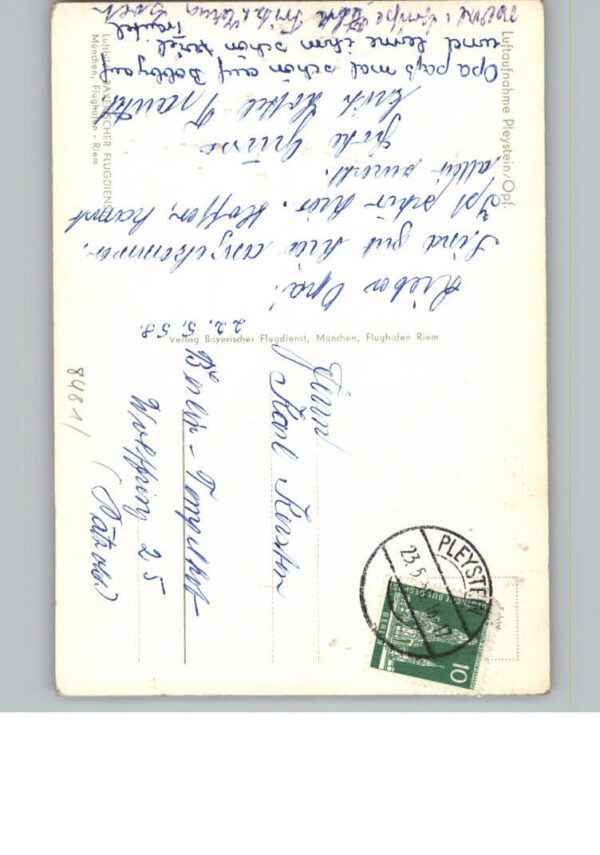 Luftaufnahme Pleystein/Opf.
Luftbild: BAYERISCHER FLUGDIENST
München, Flughafen - Riem
22. 5. 58.
Lieber Opa!
Sind gut hier angekommen.
Ist schön hier. Hoffen, kommt
alles zurecht.
Grüsse
Opa pass mal schön auf Bobby auf
und lerne ihm schön viel.
Verlag Bayerischer Flugdienst, München, Flughafen Riem
Herrn
Karl Kersten
Berlin - Tempelhof
Wolffring 25
8481/
PLEYSTEIN
23.5.
DEUTSCHE BUNDESPOST
BERLIN
10